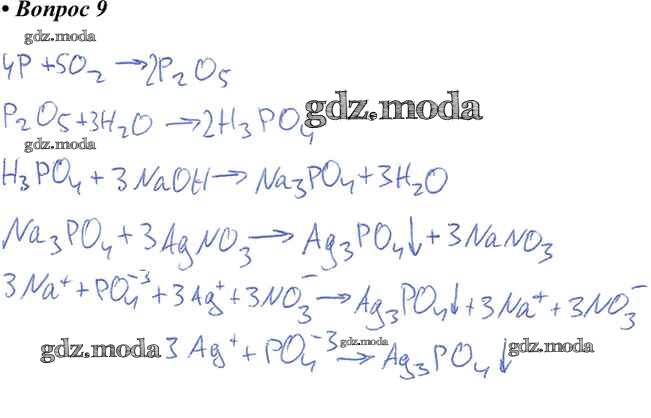 • Вопрос 9
gdz.moda
4P + 5O₂ → 2P₂O₅
P₂O₅ + 3H₂O → 2H₃PO₄
gdz.moda
gdz.moda
H₃PO₄ + 3NaOH → Na₃PO₄ + 3H₂O
Na₃PO₄ + 3AgNO₃ → Ag₃PO₄↓ + 3NaNO₃
3Na⁺ + PO₄⁻³ + 3Ag⁺ + 3NO₃⁻ → Ag₃PO₄↓ + 3Na⁺ + 3NO₃⁻
gdz.moda
3Ag⁺ + PO₄⁻³ → Ag₃PO₄↓
gdz.moda
gdz.moda